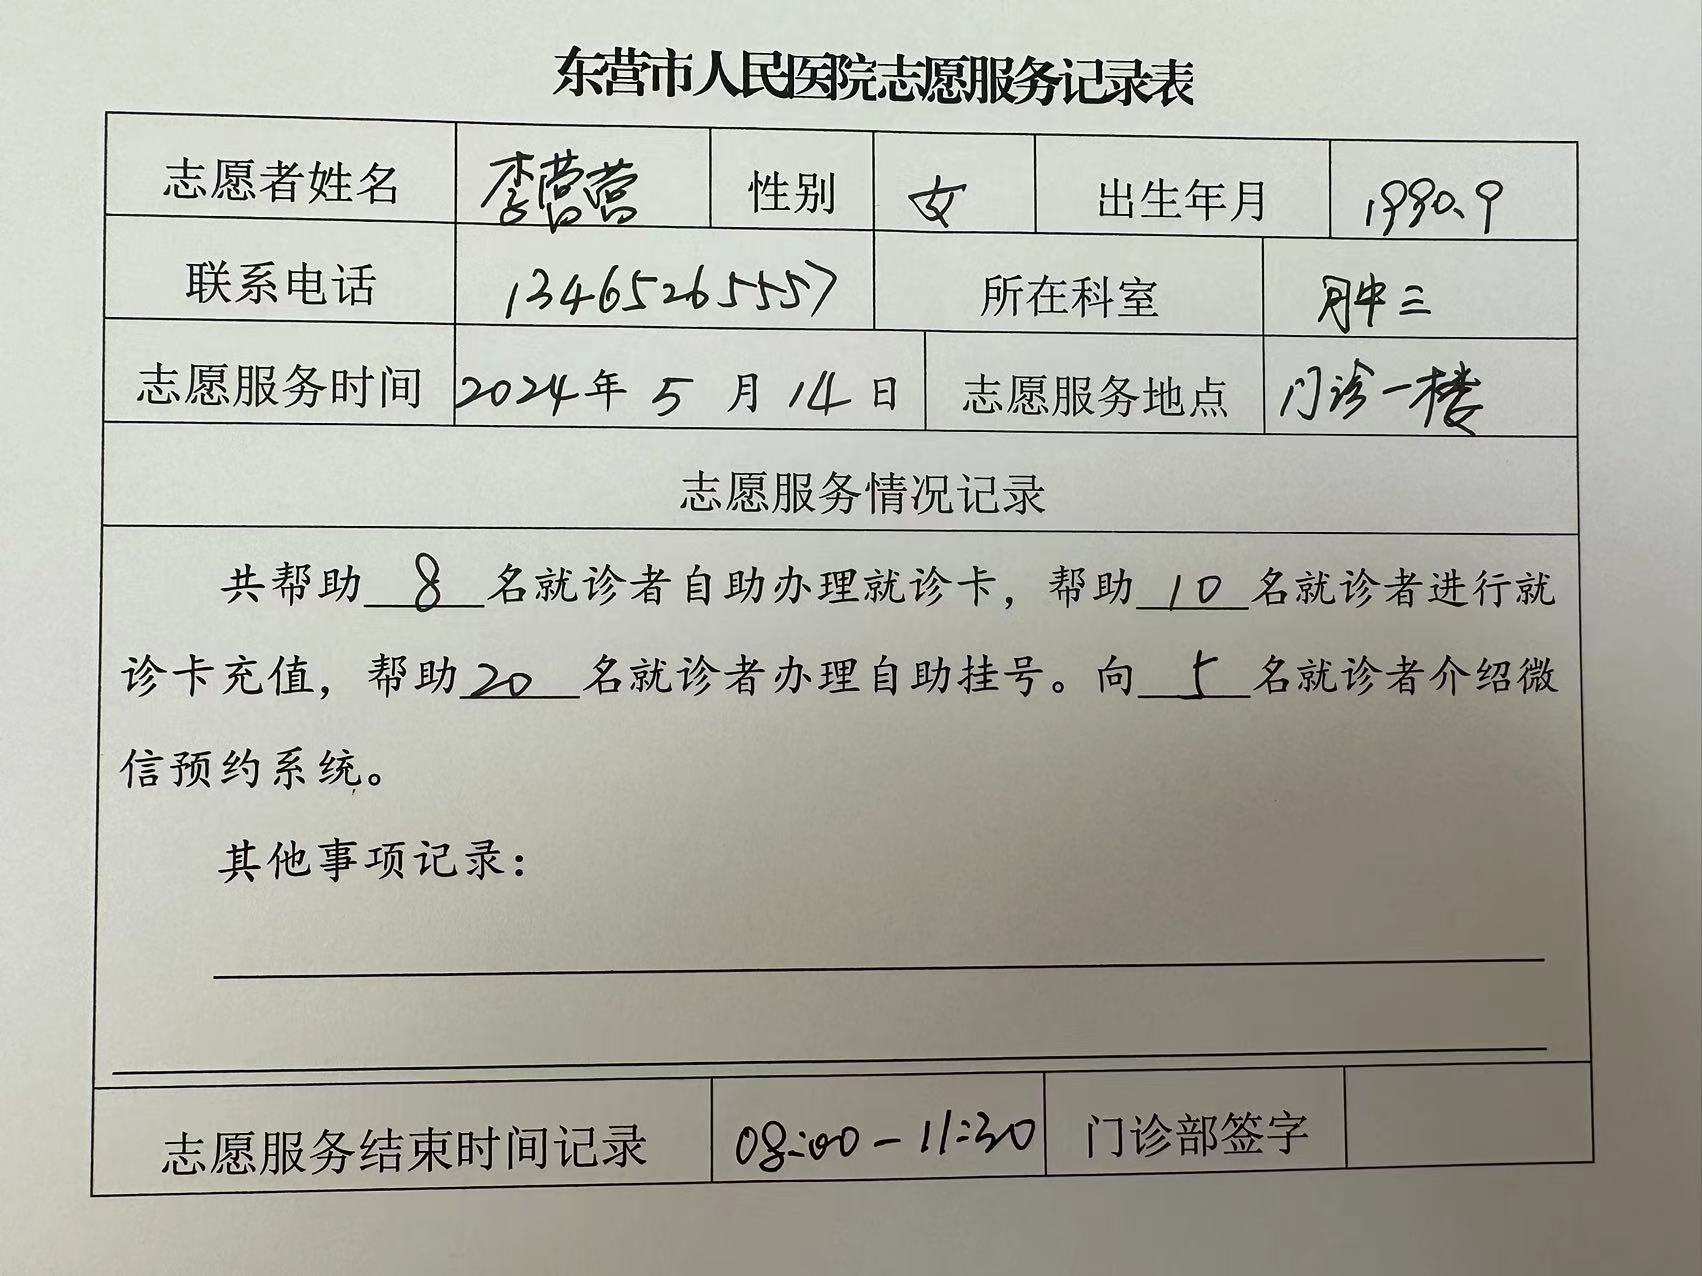 东营市人民医院志愿服务记录表
志愿者姓名 李营营 性别 女 出生年月 1990.9
联系电话 13465265557 所在科室 肿三
志愿服务时间 2024年 5 月 14 日 志愿服务地点 门诊一楼
志愿服务情况记录
共帮助 8 名就诊者自助办理就诊卡，帮助 10 名就诊者进行就
诊卡充值，帮助 20 名就诊者办理自助挂号。向 5 名就诊者介绍微
信预约系统。
其他事项记录：
志愿服务结束时间记录 08:00-11:30 门诊部签字